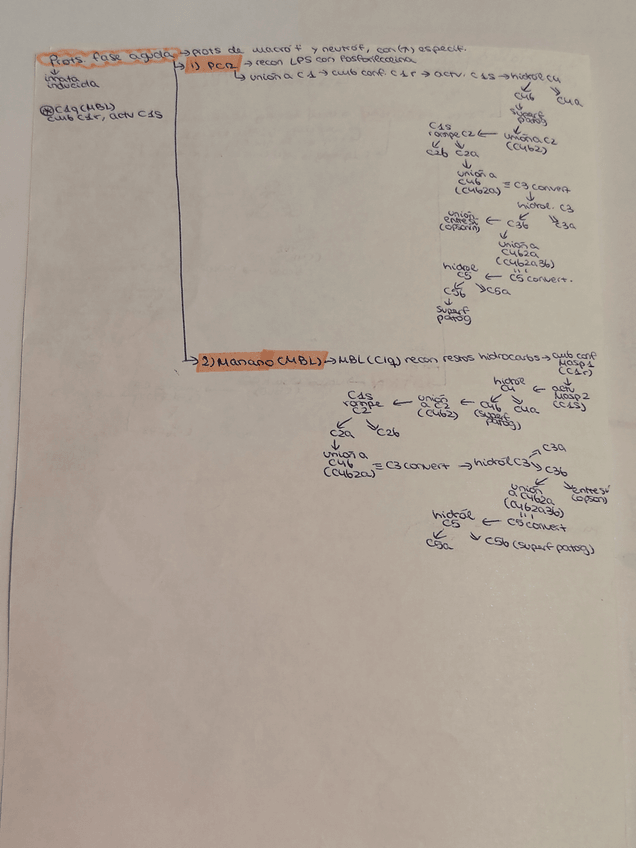 Prots. fase aguda → prots de macróf y neutróf, con (r) específ.
↓
innata
inducida
⊛ C1q (MBL)
camb C1r, activ C1S
1) PCR → recon LPS con fosforilcolina
↳ unión a C1 → camb conf. C1r → activ. C1S → hidról C4
C4b C4a
superf
patóg
unión a C2
(C4b2)
C1S
rompe C2 ←
C2b C2a
unión a
C4b
(C4b2a) ≡ C3 convert
hidról. C3
C3b C3a
unión
entre sí
(opson) ←
unión a
C4b2a
(C4b2a3b)
C5 convert.
hidról
C5 ←
C5b C5a
superf
patóg
2) Manano (MBL) → MBL (C1q) recon restos hidrocarbs → camb conf
Masp1
(C1r)
activ
Masp2
(C1S)
hidról
C4 ←
C4b C4a
(superf
patóg)
unión
a C2
(C4b2) ←
C1S
rompe
C2 ←
C2a C2b
unión a
C4b
(C4b2a) ≡ C3 convert → hidról C3
C3a
C3b
unión
a C4b2a
(C4b2a3b)
entre sí
(opson)
C5 convert
hidról
C5 ←
C5a C5b (superf patóg)